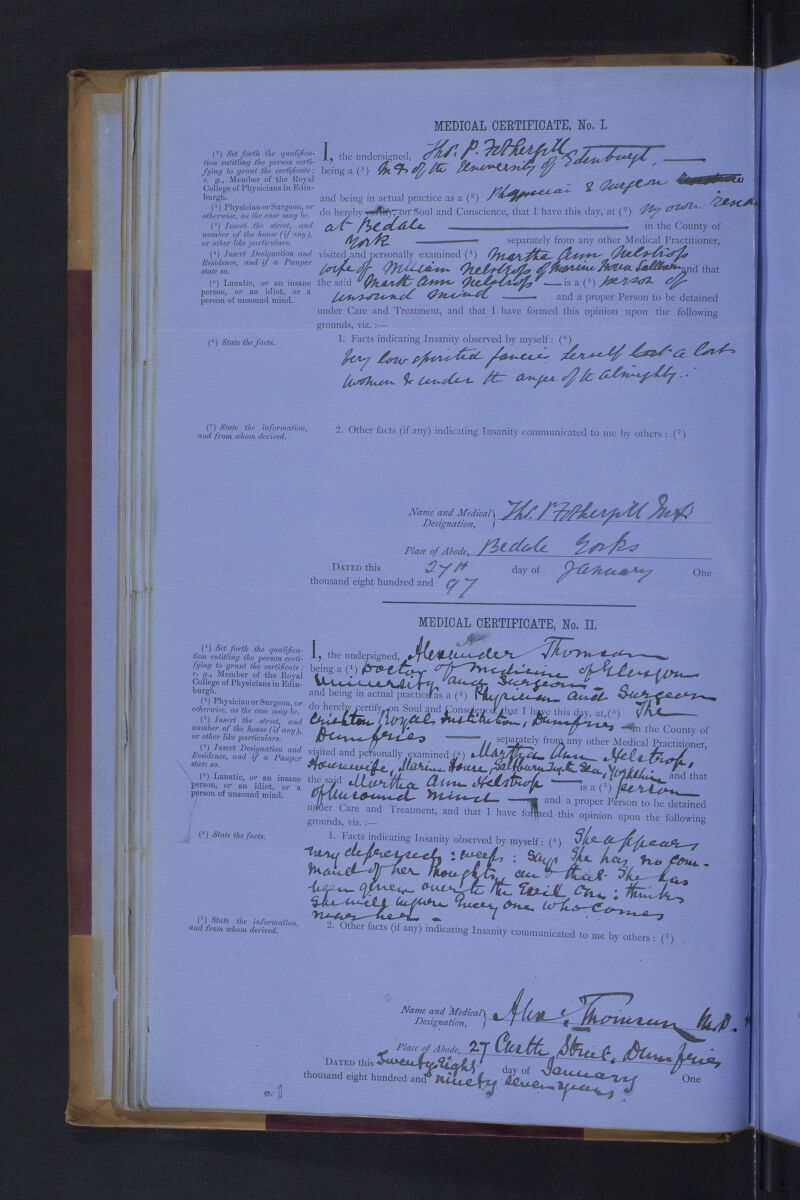 MEDICAL CERTIFICATE, No. I.
(¹) Set forth the qualifica-
tion entitling the person certi-
fying to grant the certificate:
e. g., Member of the Royal
College of Physicians in Edin-
burgh.
(²) Physician or Surgeon, or
otherwise, as the case may be.
(³) Insert the street, and
number of the house (if any),
or other like particulars.
(⁴) Insert Designation and
Residence, and if a Pauper
state so.
(⁵) Lunatic, or an insane
person, or an idiot, or a
person of unsound mind.
I, the undersigned, Thos. P. Fothergill
being a (¹) M D of the University of Edinburgh,
and being in actual practice as a (²) Physician & Surgeon
do hereby certify, on Soul and Conscience, that I have this day, at (³) my own
at Bedale in the County of
York separately from any other Medical Practitioner,
visited and personally examined (⁴) Martha Ann Helstrop
wife of William Helstrop of Marine House Saltburn and that
the said Marth Ann Helstrop is a (⁵) person of
unsound mind and a proper Person to be detained
under Care and Treatment, and that I have formed this opinion upon the following
grounds, viz. :—
(⁶) State the facts.
1. Facts indicating Insanity observed by myself: (⁶)
Very low spirited fancies herself a lost
woman & under the anger of the Almighty.
(⁷) State the information,
and from whom derived.
2. Other facts (if any) indicating Insanity communicated to me by others : (⁷)
Name and Medical Designation, Thos. P Fothergill M D
Place of Abode, Bedale Yorks
DATED this 27th day of January One
thousand eight hundred and 97
MEDICAL CERTIFICATE, No. II.
(¹) Set forth the qualifica-
tion entitling the person certi-
fying to grant the certificate:
e. g., Member of the Royal
College of Physicians in Edin-
burgh.
(²) Physician or Surgeon, or
otherwise, as the case may be.
(³) Insert the street, and
number of the house (if any),
or other like particulars.
(⁴) Insert Designation and
Residence, and if a Pauper
state so.
(⁵) Lunatic, or an insane
person, or an idiot, or a
person of unsound mind.
I, the undersigned, Alexander Thomson
being a (¹) Doctor of Medicine of Glasgow
University and Surgeon
and being in actual practice as a (²) Physician and Surgeon
do hereby certify, on Soul and Conscience that I have this day, at (³) The
Crichton Royal Institution, Dumfries in the County of
Dumfries separately from any other Medical Practitioner,
visited and personally examined (⁴) Martha Ann Helstrop,
Housewife, Marine House, Saltburn by the Sea, Yorkshire and that
the said Martha Ann Helstrop is a (⁵) person
of Unsound mind and a proper Person to be detained
under Care and Treatment, and that I have formed this opinion upon the following
grounds, viz. :—
(⁶) State the facts.
1. Facts indicating Insanity observed by myself: (⁶) She appears
very depressed : weeps : says she has no com-
mand of her thoughts and that she has
been given over to the Evil One : thinks
she will injure every one who comes
near her -
(⁷) State the information,
and from whom derived.
2. Other facts (if any) indicating Insanity communicated to me by others : (⁷)
Name and Medical Designation, Alex : Thomson M.D.
Place of Abode, 27 Castle Street, Dumfries
DATED this Twenty Eight day of January One
thousand eight hundred and ninety seven years.